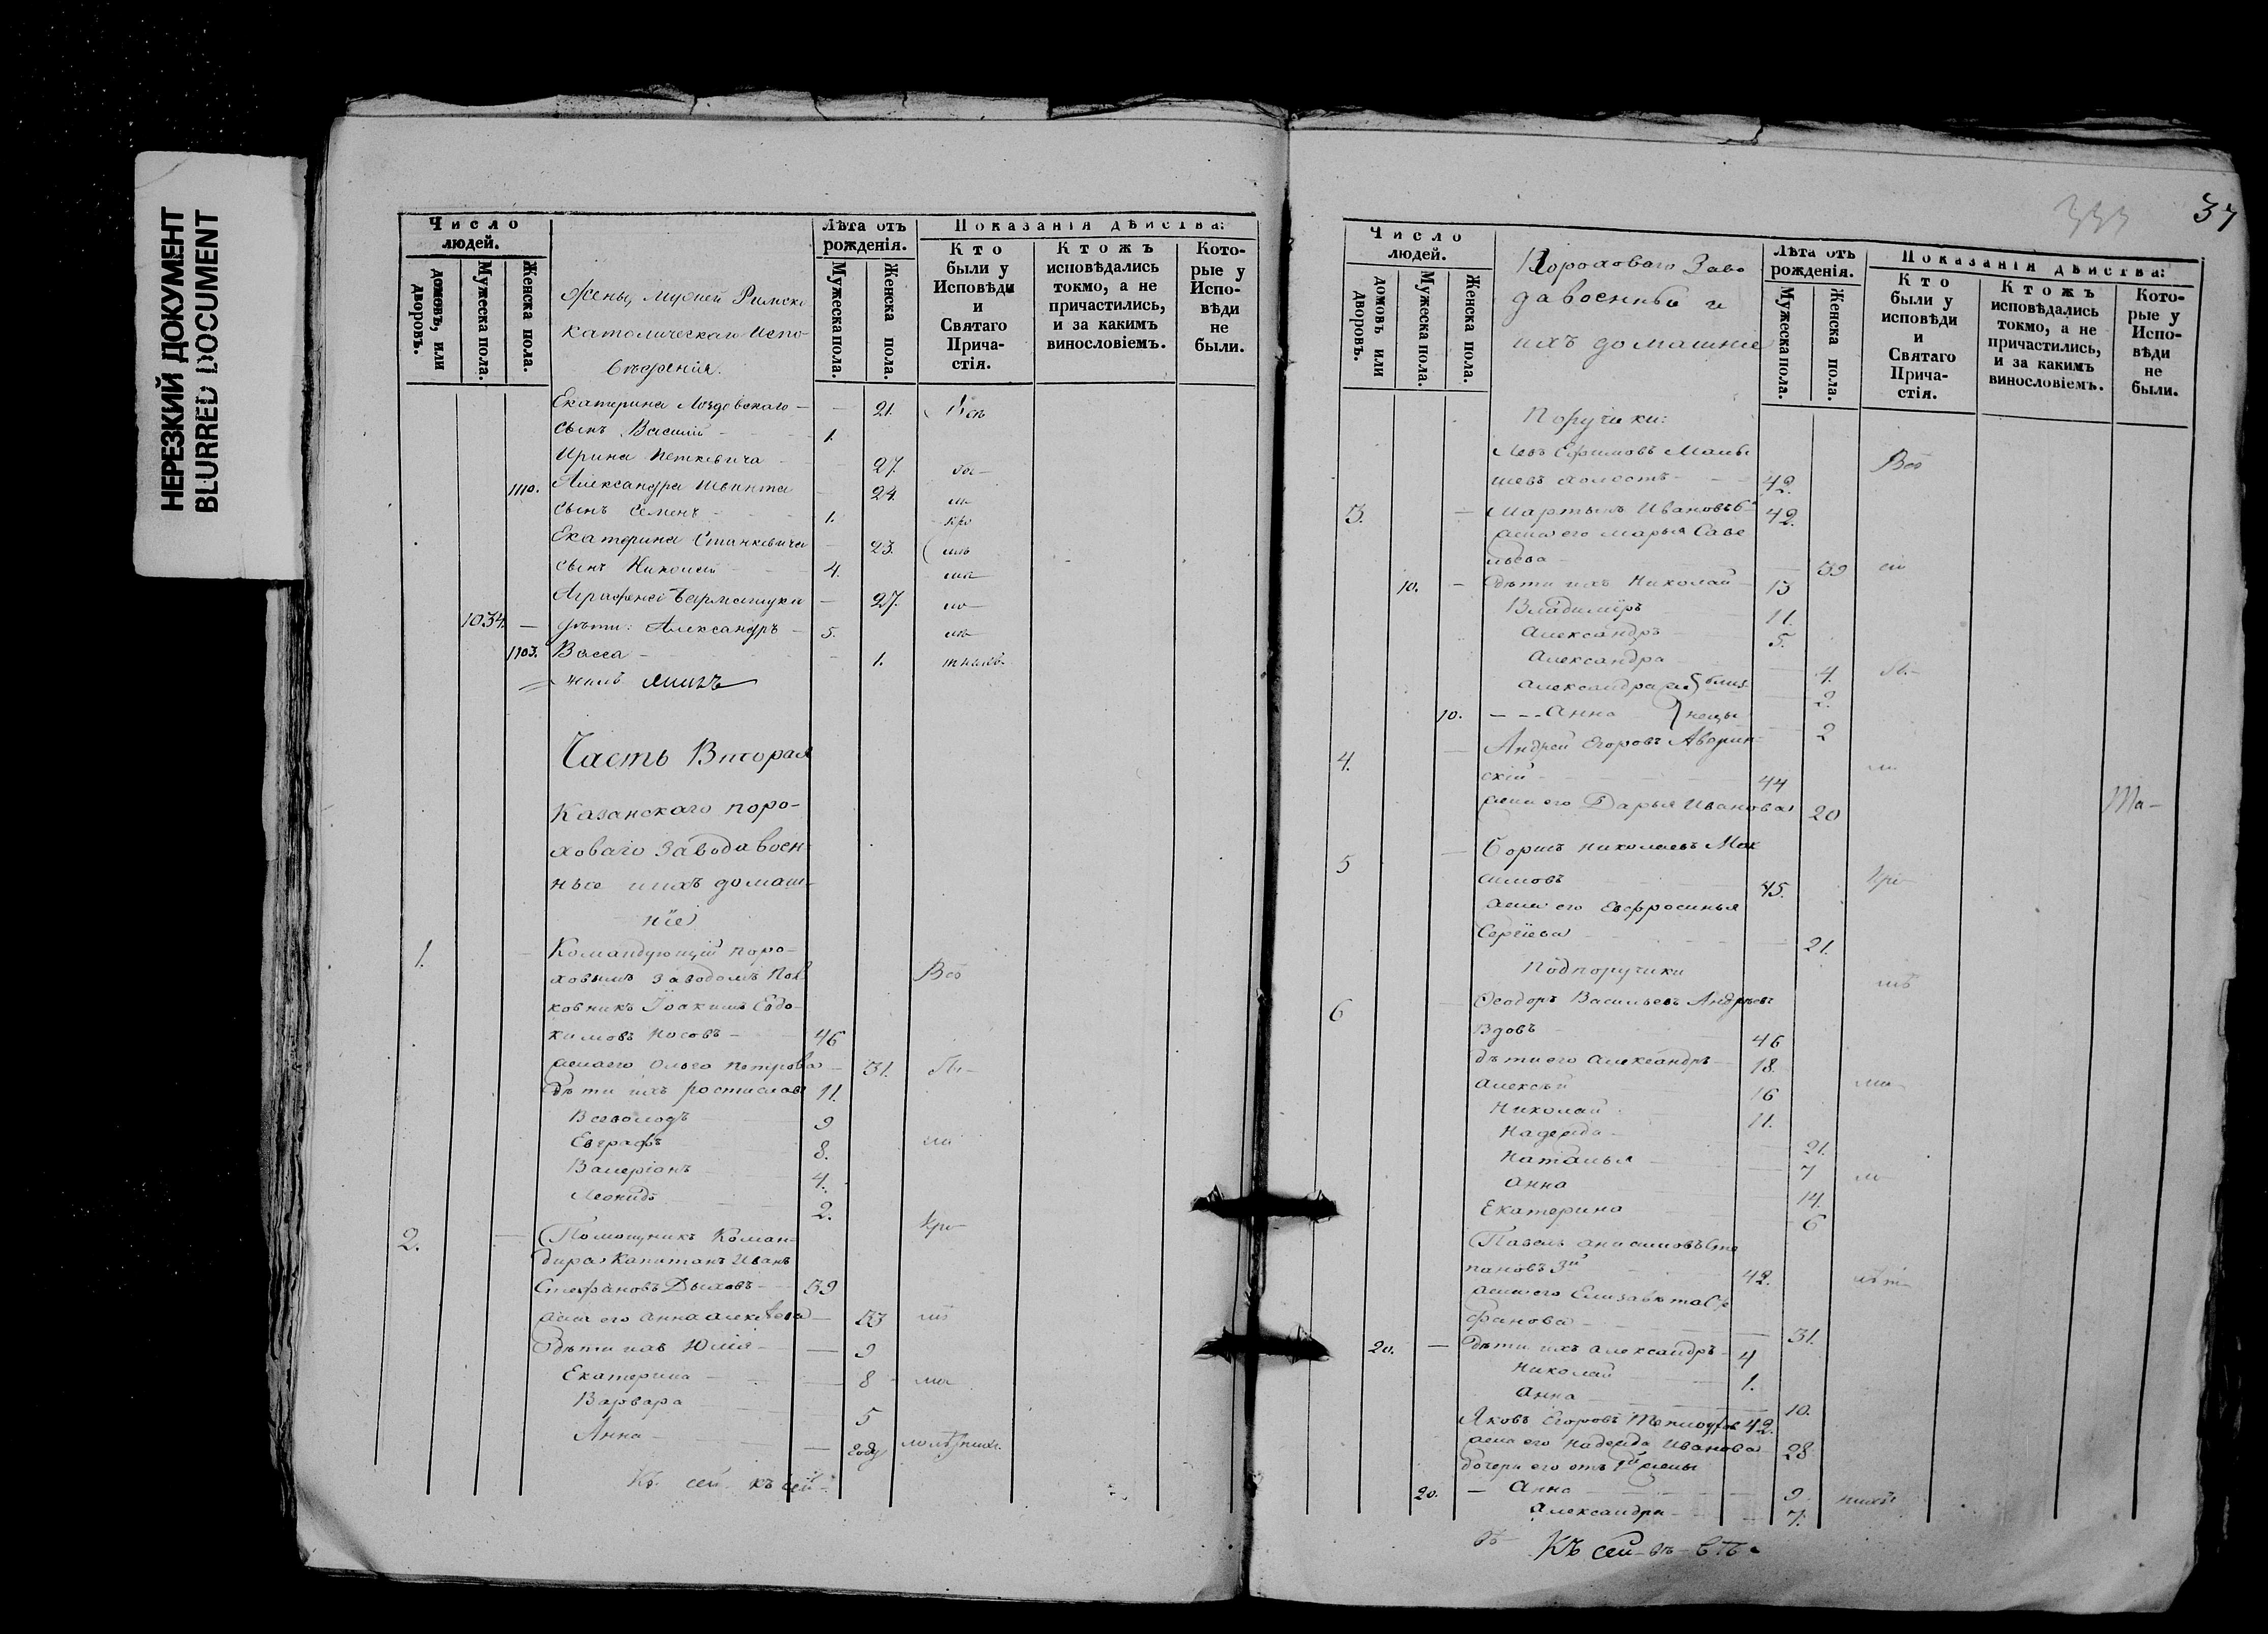 НЕРЕЗКИЙ ДОКУМЕНТ
BLURRED DOCUMENT
Число людей.
домовъ, или дворовъ.
Мужеска пола.
Женска пола.
Жены, мужей Римско
католическаго испо-
вѣденія.
Лѣта отъ рожденія.
Мужеска пола.
Женска пола.
Показанія дѣйства:
Кто были у Исповѣди и Святаго Прича-стія.
Ктожъ исповѣдались токмо, а не причастились, и за какимъ винословіемъ.
Кото-рые у Испо-вѣди не были.
Екатерина — 21.
сынъ Василій — 1.
Ирина Петкевича — 27.
1110. Александра — 24.
сынъ Семенъ — 1.
Екатерина Станкевича — 23.
сынъ Николай — 4.
Аграфена — 27.
1034. — дѣти: Александръ — 5.
1103. Васса — 1.
Часть Вторая
Казанскаго поро-
ховаго завода воен-
ные и ихъ домаш-
ніе
1. Командующій поро-
ховымъ заводомъ Пол-
ковникъ Іоакимъ Евдо-
кимовъ Носовъ — 46
жена его Ольга Петрова — 31.
дѣти ихъ Ростиславъ 11.
Всеволодъ 9
Евграфъ 8.
Валеріанъ 4.
Леонидъ 2.
2. Помощникъ Коман-
дира Капитанъ Иванъ
Стефановъ Дыховъ — 39
жена его Анна Алексѣева — 33
дѣти ихъ Юлія — 9
Екатерина — 8
Варвара 5
Анна — году
37
333
Число людей.
домовъ или дворовъ.
Мужеска пола.
Женска пола.
Пороховаго Заво
да военныя и
ихъ домашніе
Лѣта отъ рожденія.
Мужеска пола.
Женска пола.
Показанія дѣйства:
Кто были у исповѣди и Святаго Прича-стія.
Ктожъ исповѣдались токмо, а не причастились, и за какимъ винословіемъ.
Кото-рые у Испо-вѣди не были.
Поручики:
Левъ Ефимовъ Малы
шевъ холостъ — 42.
3. — Мартынъ Ивановъ 42.
жена его Марья Саве
льева — 39
10. — дѣти ихъ Николай — 13
Владиміръ 11.
Александръ 5.
Александра 4.
Александра близ- 2.
10. — Анна нецы 2
4. — Андрей Егоровъ Аверин-
скій — 44
жена его Дарья Иванова 20
5 — Борисъ Николаевъ Мак
симовъ 45.
жена его Евфросинья
Сергіева 21.
Подпоручики
6 Ѳеодоръ Васильевъ Андреевъ
вдовъ 46
дѣти его Александръ — 18.
Алексѣй 16
Николай 11.
Надежда 21.
Наталья 7
Анна 14.
Екатерина 6
Павелъ Анисимовъ Сте
пановъ 3й 42.
жена его Елизавета Сте
фанова 31.
20. — дѣти ихъ Александръ — 4
Николай 1.
Анна 10.
Яковъ Егоровъ 42.
жена его Надежда Иванова 28
дочери его отъ 1й жены
20. — Анна 9
Александра — 7.